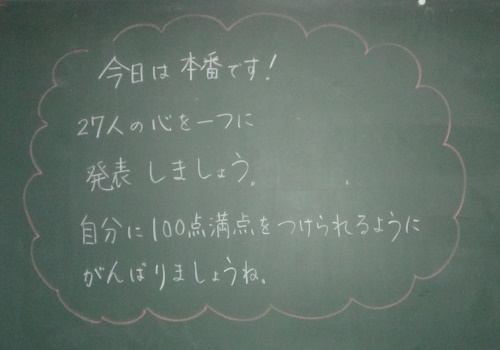 今日は本番です!
27人の心を一つに
発表しましょう。
自分に100点満点をつけられるように
がんばりましょうね。